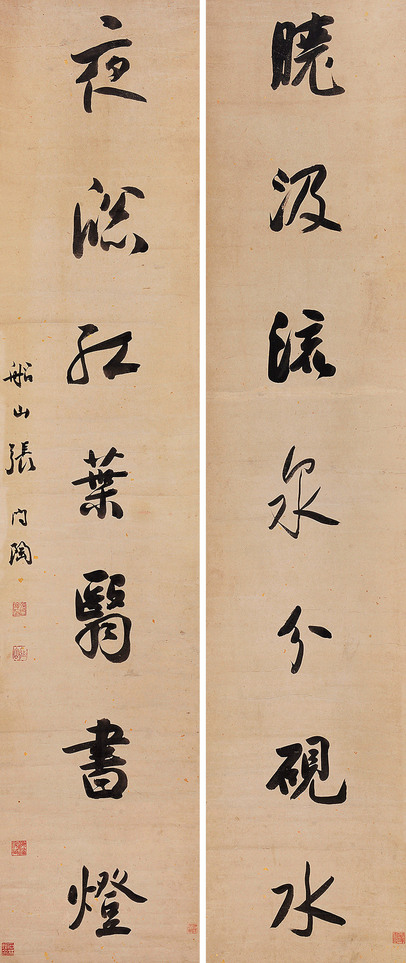 曉汲流泉分硯水
夜紅葉翳書燈
船山張問陶